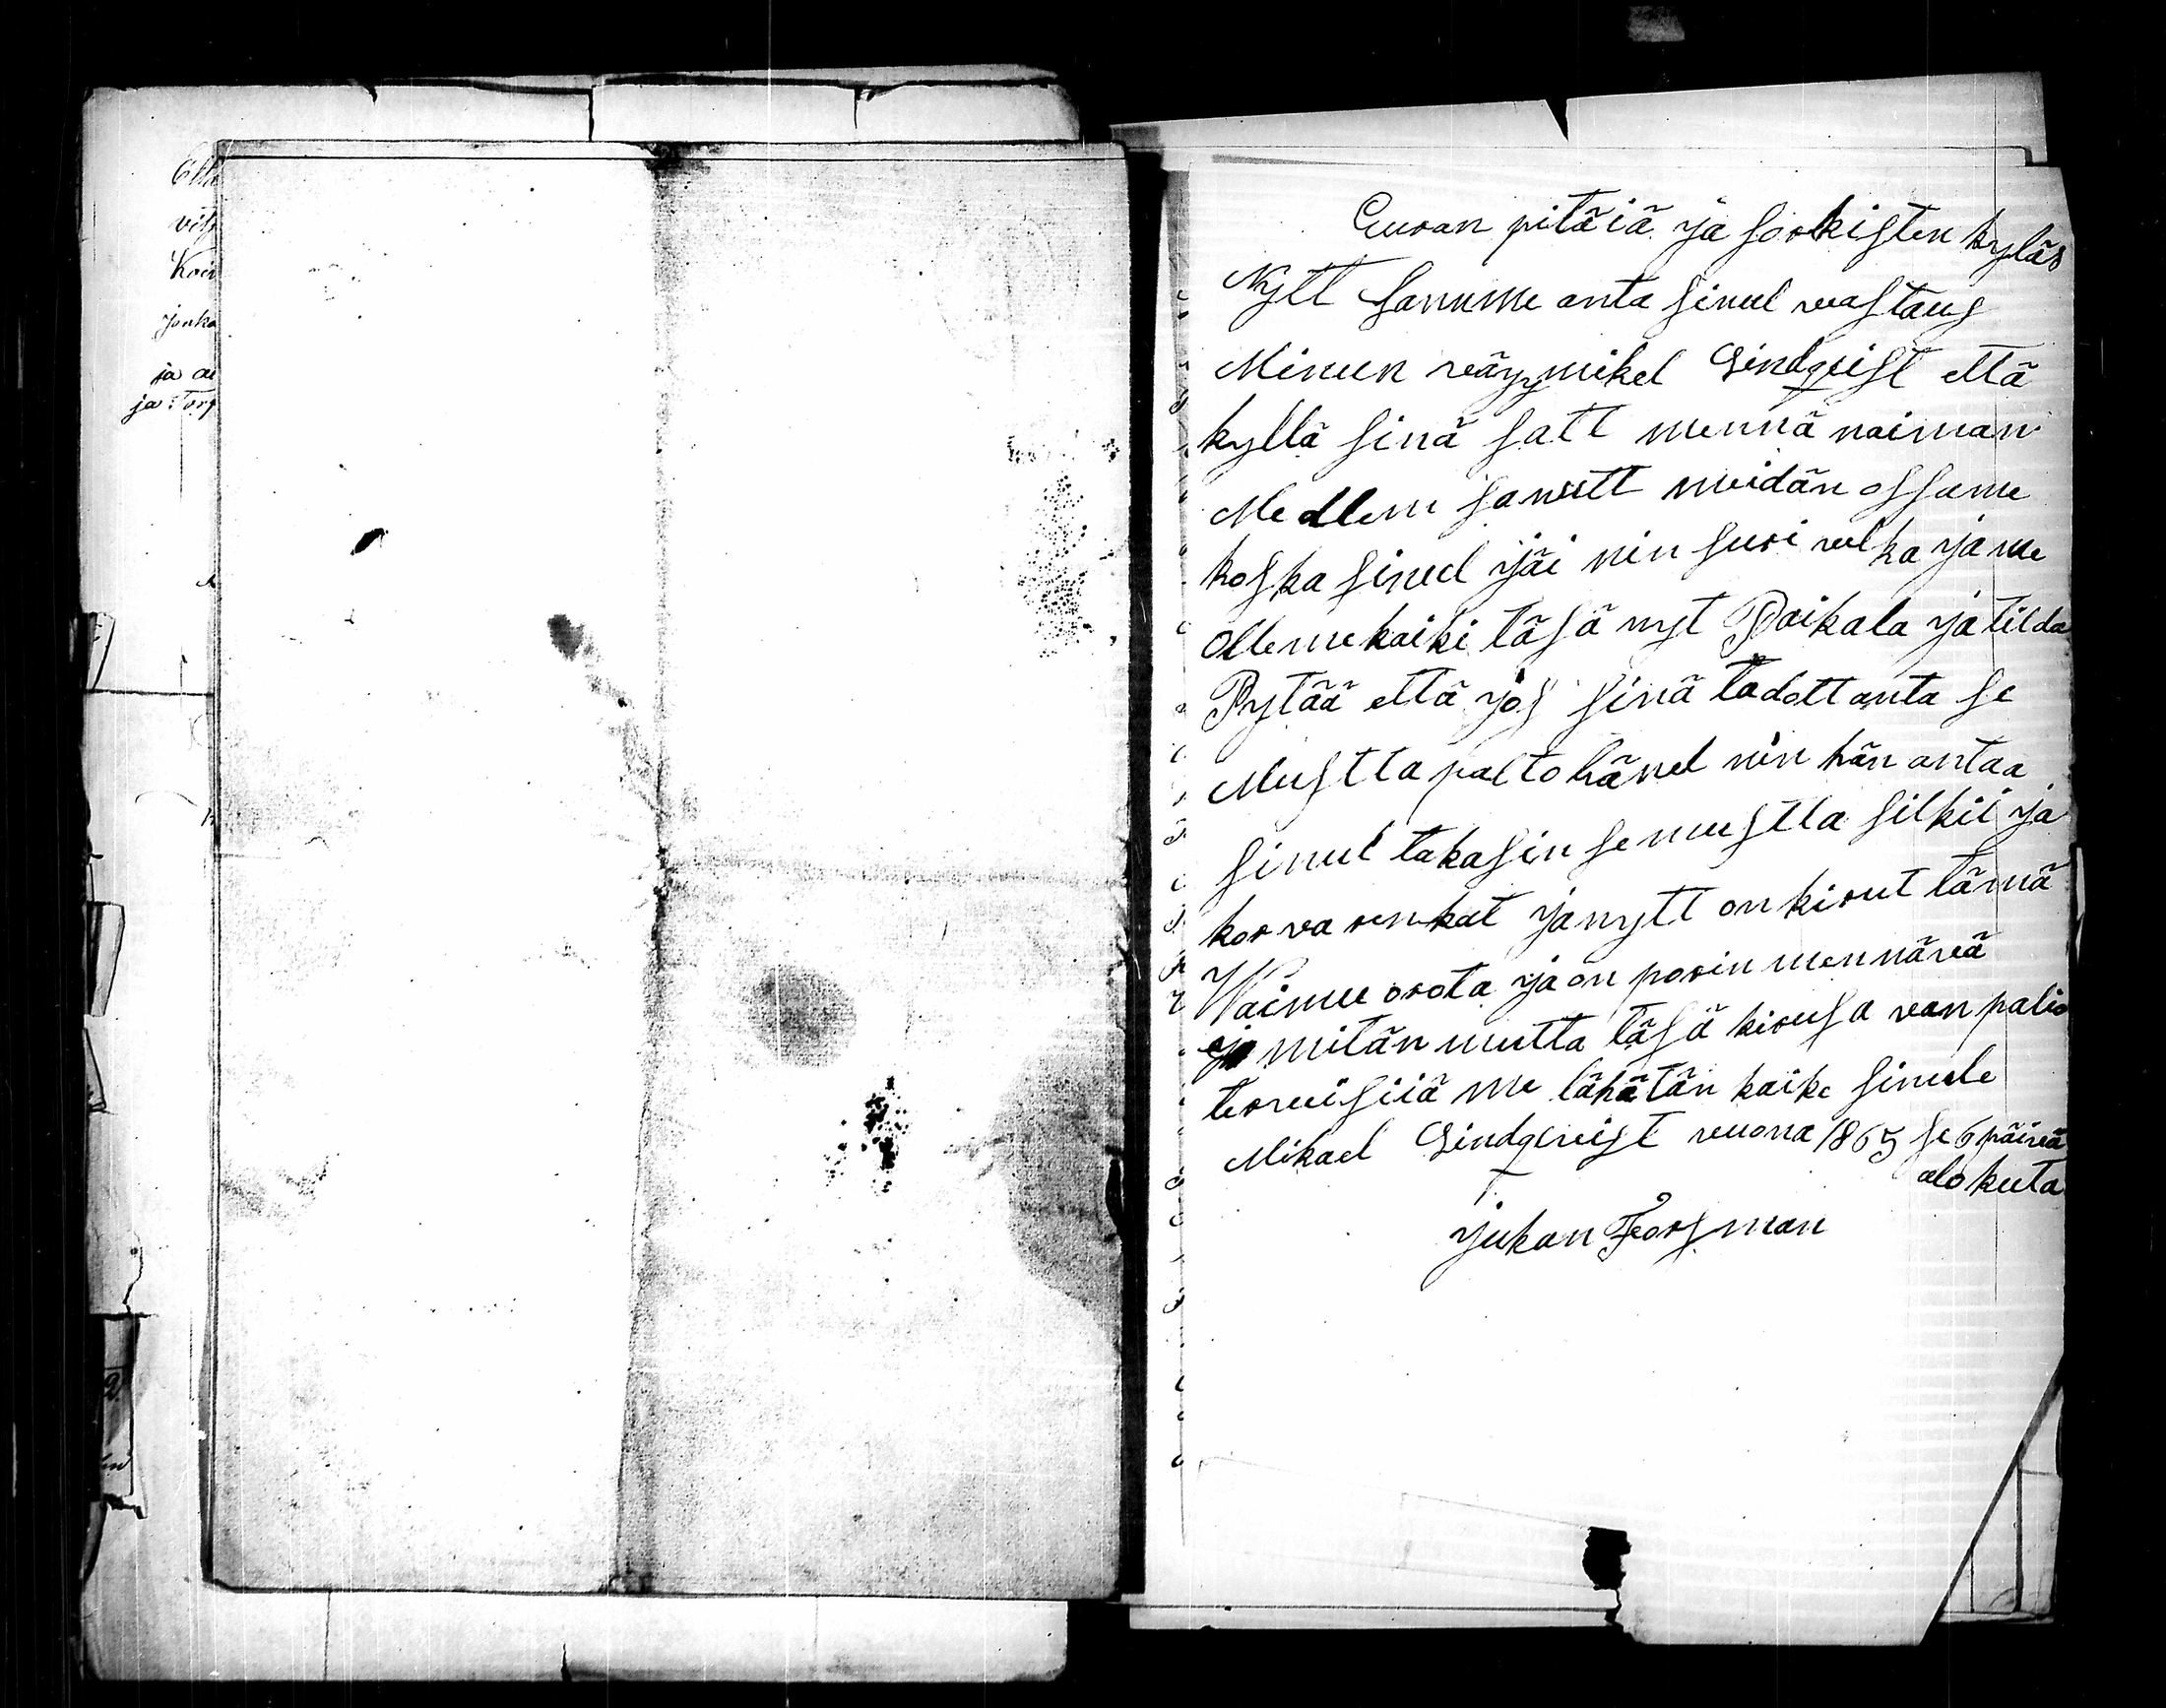 Ella
vih
Koi
jonka
ja ai
ja Torp
Euran pitäiä ja sorkisten kyläs
Nytt sanume anta sinul vastaus
Minun vävy mikel Lindqvist että
kyllä sinä satt mennä naiman
Me ollem sanutt meidän ossame
koska sinul jäi nin suri velka ja me
Olleme kaiki täsä nyt Paikala ja tilda
Pytää että jos sinä tadott anta se
Mustta palto hänel nin hän antaa
sinul takasin se mustta silkii ja
korva renkat ja nytt on kirut tämä
Waimu orota ja on porin mennävä
ej mitän mutta täsä kirusa van palio
terveisiiä me lähätän kaike sinule
Mikael Lindqvist vuona 1865 se 6 päivä
alo kuta
jukan Forsman